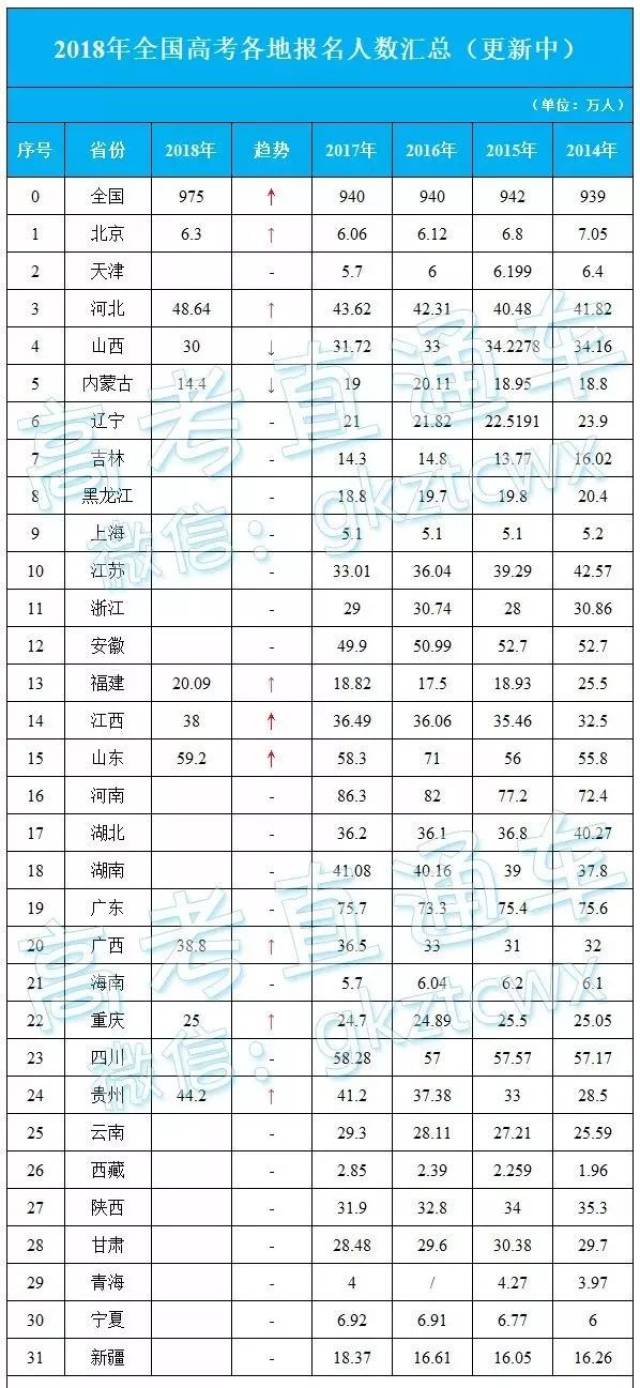 2018年全国高考各地报名人数汇总（更新中）
（单位：万人）
序号 省份 2018年 趋势 2017年 2016年 2015年 2014年
0 全国 975 ↑ 940 940 942 939
1 北京 6.3 ↑ 6.06 6.12 6.8 7.05
2 天津 - 5.7 6 6.199 6.4
3 河北 48.64 ↑ 43.62 42.31 40.48 41.82
4 山西 30 ↓ 31.72 33 34.2278 34.16
5 内蒙古 14.4 ↓ 19 20.11 18.95 18.8
6 辽宁 - 21 21.82 22.5191 23.9
7 吉林 - 14.3 14.8 13.77 16.02
8 黑龙江 - 18.8 19.7 19.8 20.4
9 上海 - 5.1 5.1 5.1 5.2
10 江苏 - 33.01 36.04 39.29 42.57
11 浙江 - 29 30.74 28 30.86
12 安徽 - 49.9 50.99 52.7 52.7
13 福建 20.09 ↑ 18.82 17.5 18.93 25.5
14 江西 38 ↑ 36.49 36.06 35.46 32.5
15 山东 59.2 ↑ 58.3 71 56 55.8
16 河南 - 86.3 82 77.2 72.4
17 湖北 - 36.2 36.1 36.8 40.27
18 湖南 - 41.08 40.16 39 37.8
19 广东 - 75.7 73.3 75.4 75.6
20 广西 38.8 ↑ 36.5 33 31 32
21 海南 - 5.7 6.04 6.2 6.1
22 重庆 25 ↑ 24.7 24.89 25.5 25.05
23 四川 - 58.28 57 57.57 57.17
24 贵州 44.2 ↑ 41.2 37.38 33 28.5
25 云南 - 29.3 28.11 27.21 25.59
26 西藏 - 2.85 2.39 2.259 1.96
27 陕西 - 31.9 32.8 34 35.3
28 甘肃 - 28.48 29.6 30.38 29.7
29 青海 - 4 / 4.27 3.97
30 宁夏 - 6.92 6.91 6.77 6
31 新疆 - 18.37 16.61 16.05 16.26
高考直通车
微信：gkztcwx
高考直通车
微信：gkztcwx